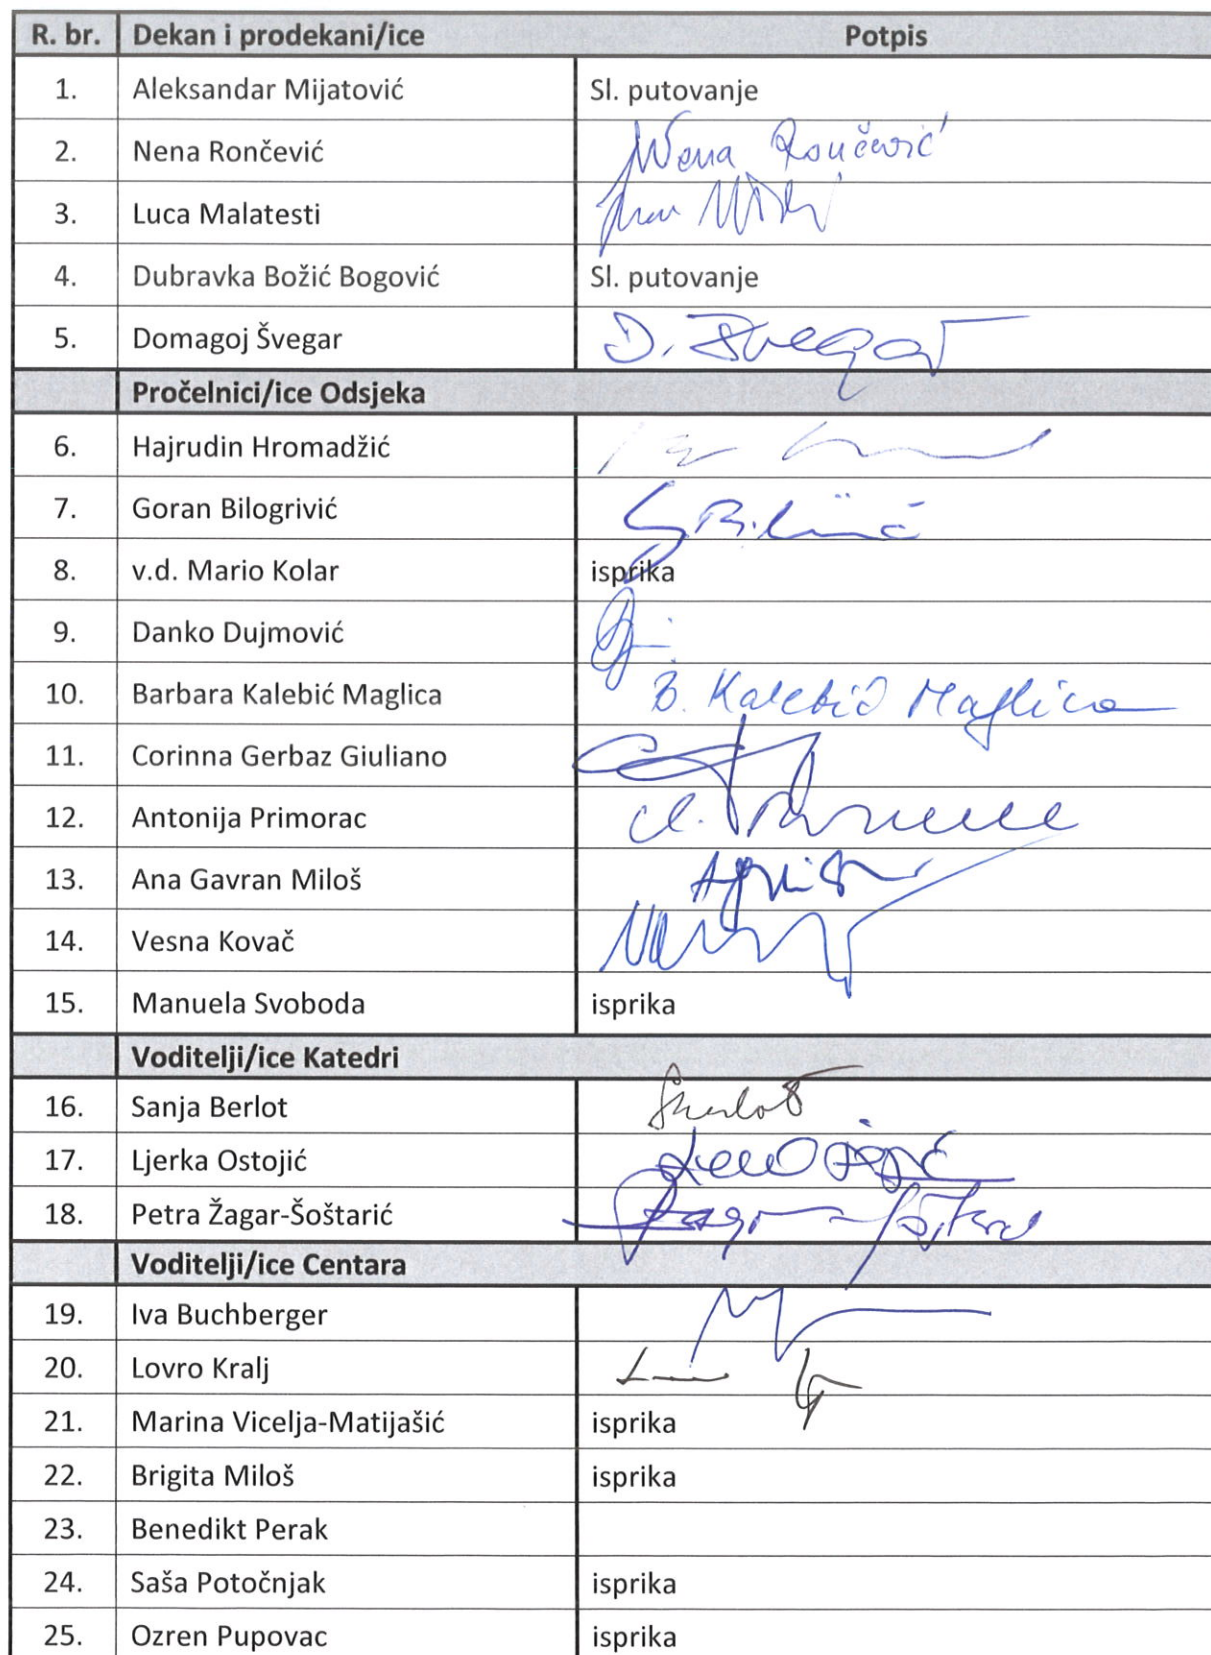 R. br. Dekan i prodekani/ice Potpis
1. Aleksandar Mijatović Sl. putovanje
2. Nena Rončević Nena Rončević
3. Luca Malatesti
4. Dubravka Božić Bogović Sl. putovanje
5. Domagoj Švegar D. Švegar
Pročelnici/ice Odsjeka
6. Hajrudin Hromadžić
7. Goran Bilogrivić
8. v.d. Mario Kolar isprika
9. Danko Dujmović
10. Barbara Kalebić Maglica B. Kalebić Maglica
11. Corinna Gerbaz Giuliano
12. Antonija Primorac
13. Ana Gavran Miloš
14. Vesna Kovač
15. Manuela Svoboda isprika
Voditelji/ice Katedri
16. Sanja Berlot
17. Ljerka Ostojić
18. Petra Žagar-Šoštarić
Voditelji/ice Centara
19. Iva Buchberger
20. Lovro Kralj
21. Marina Vicelja-Matijašić isprika
22. Brigita Miloš isprika
23. Benedikt Perak
24. Saša Potočnjak isprika
25. Ozren Pupovac isprika